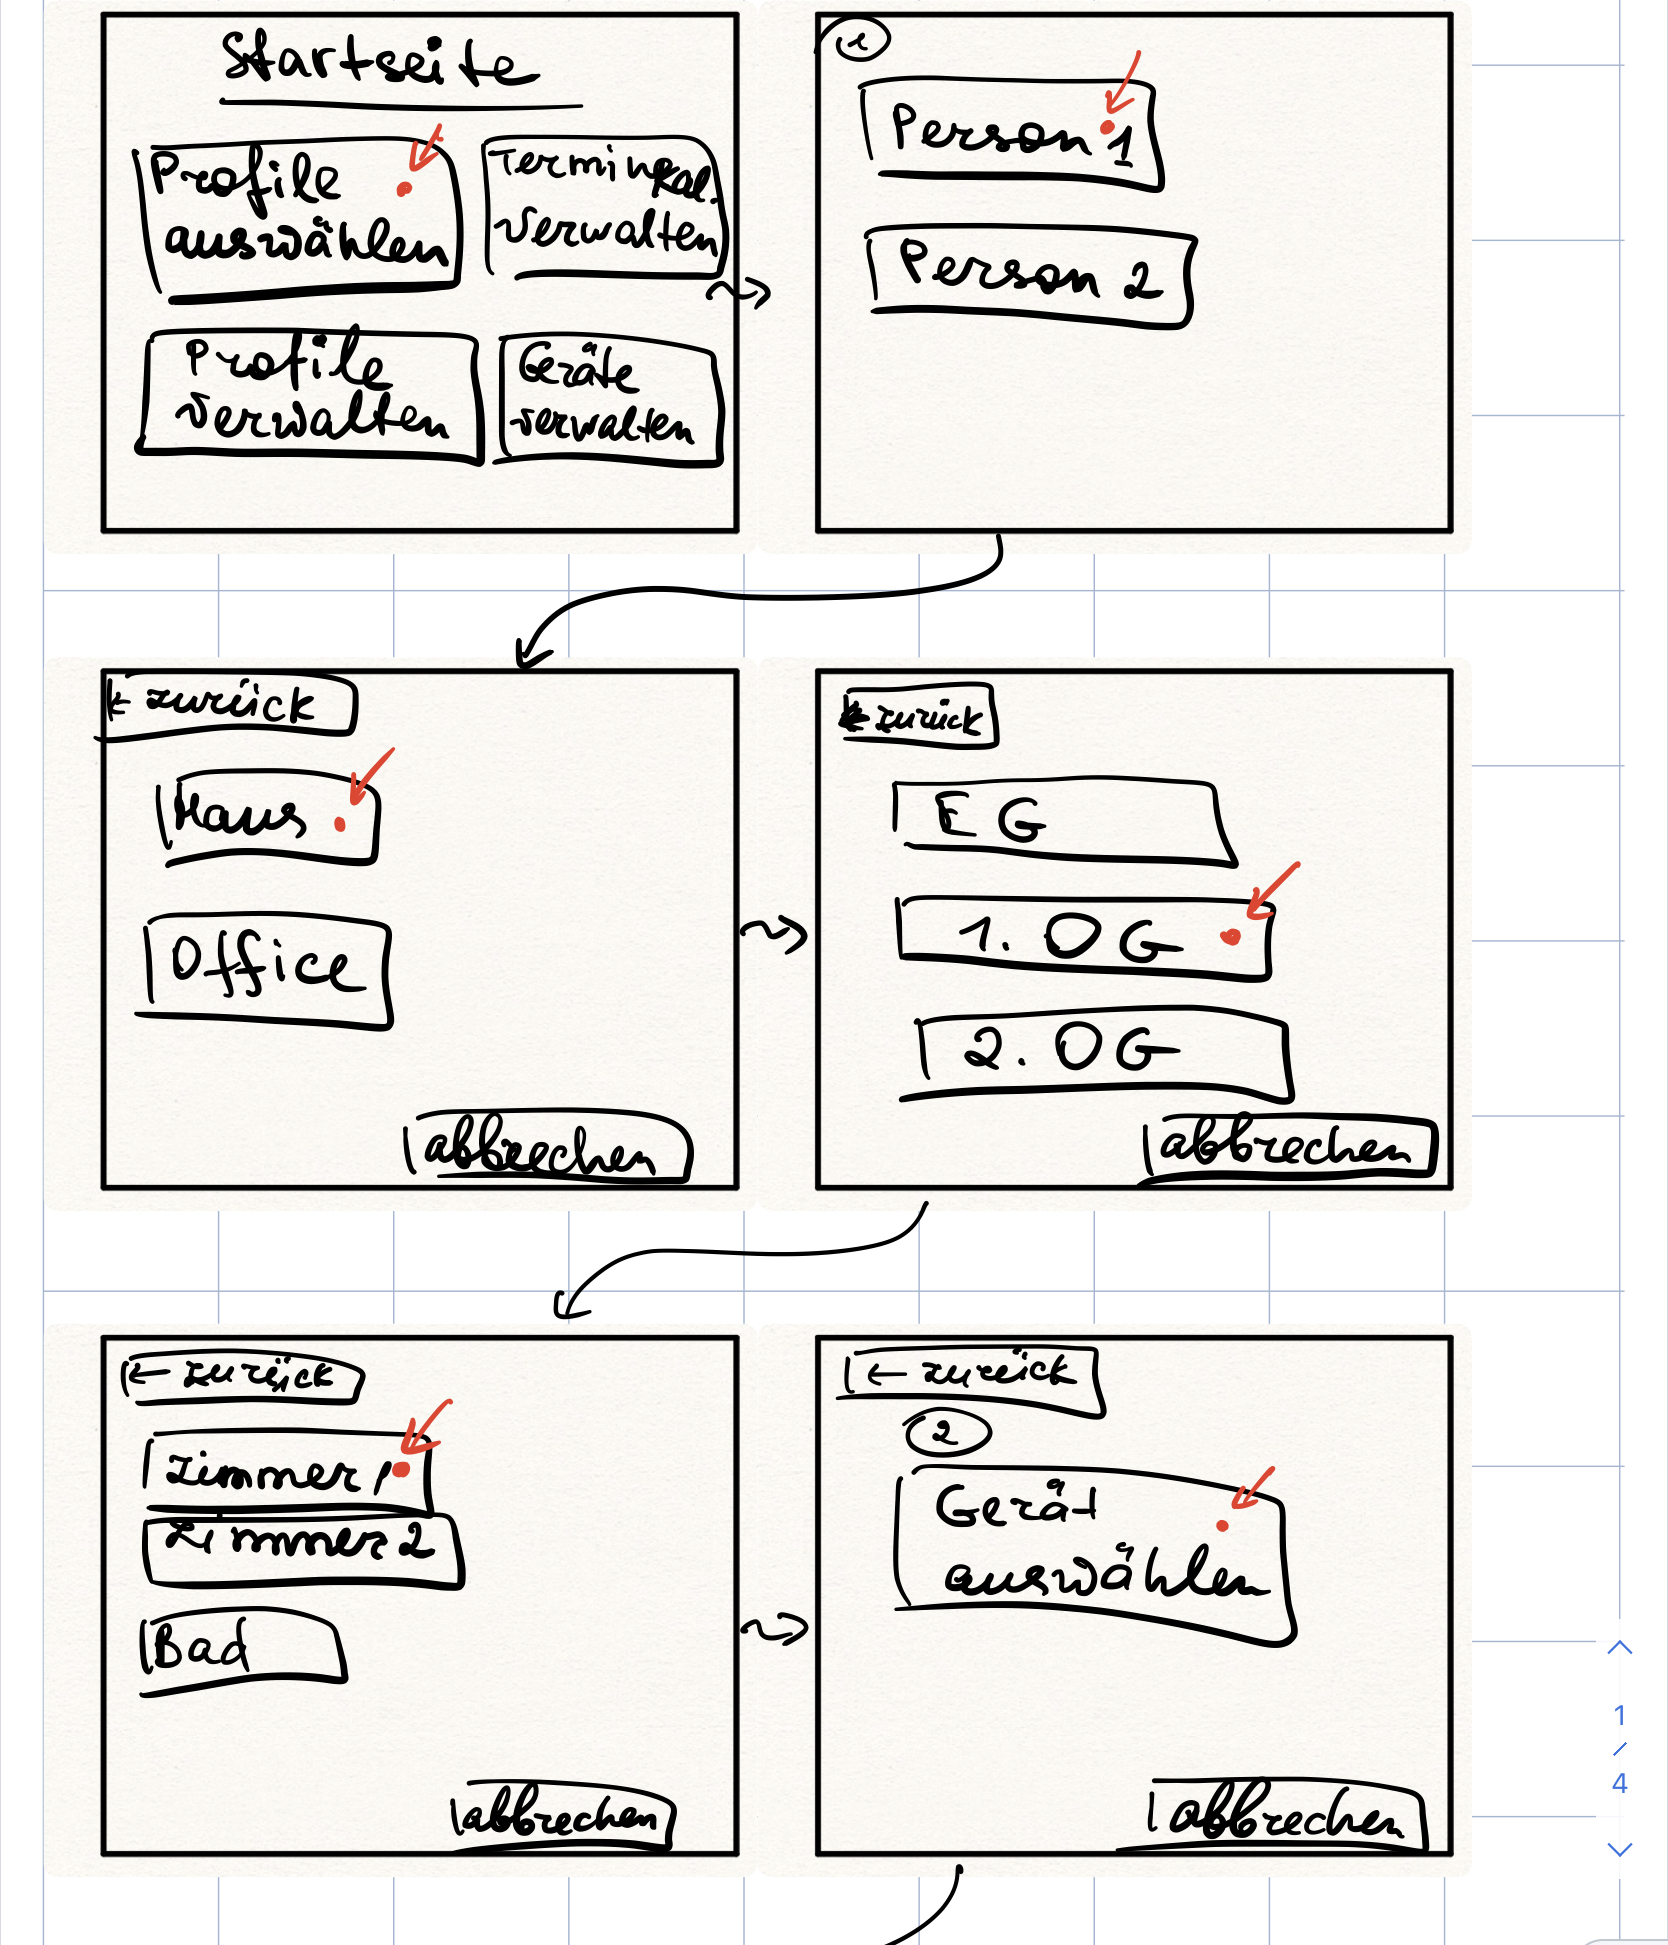 Startseite
Profile
auswählen
Terminkal.
verwalten
Profile
verwalten
Geräte
verwalten
1
Person 1
Person 2
← zurück
Haus
Office
abbrechen
← zurück
EG
1. OG
2. OG
abbrechen
← zurück
Zimmer 1
Zimmer 2
Bad
abbrechen
← zurück
2
Gerät
auswählen
abbrechen
1
/
4